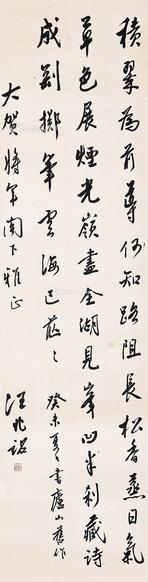 積翠為前導何知路阻長松香蒸日氣
草色展煙光嶺盡全湖見峯凹半剎藏詩
成剛擲筆雲海已茫〻
癸未夏書廬山舊作
大賀將軍閣下雅正
汪兆銘